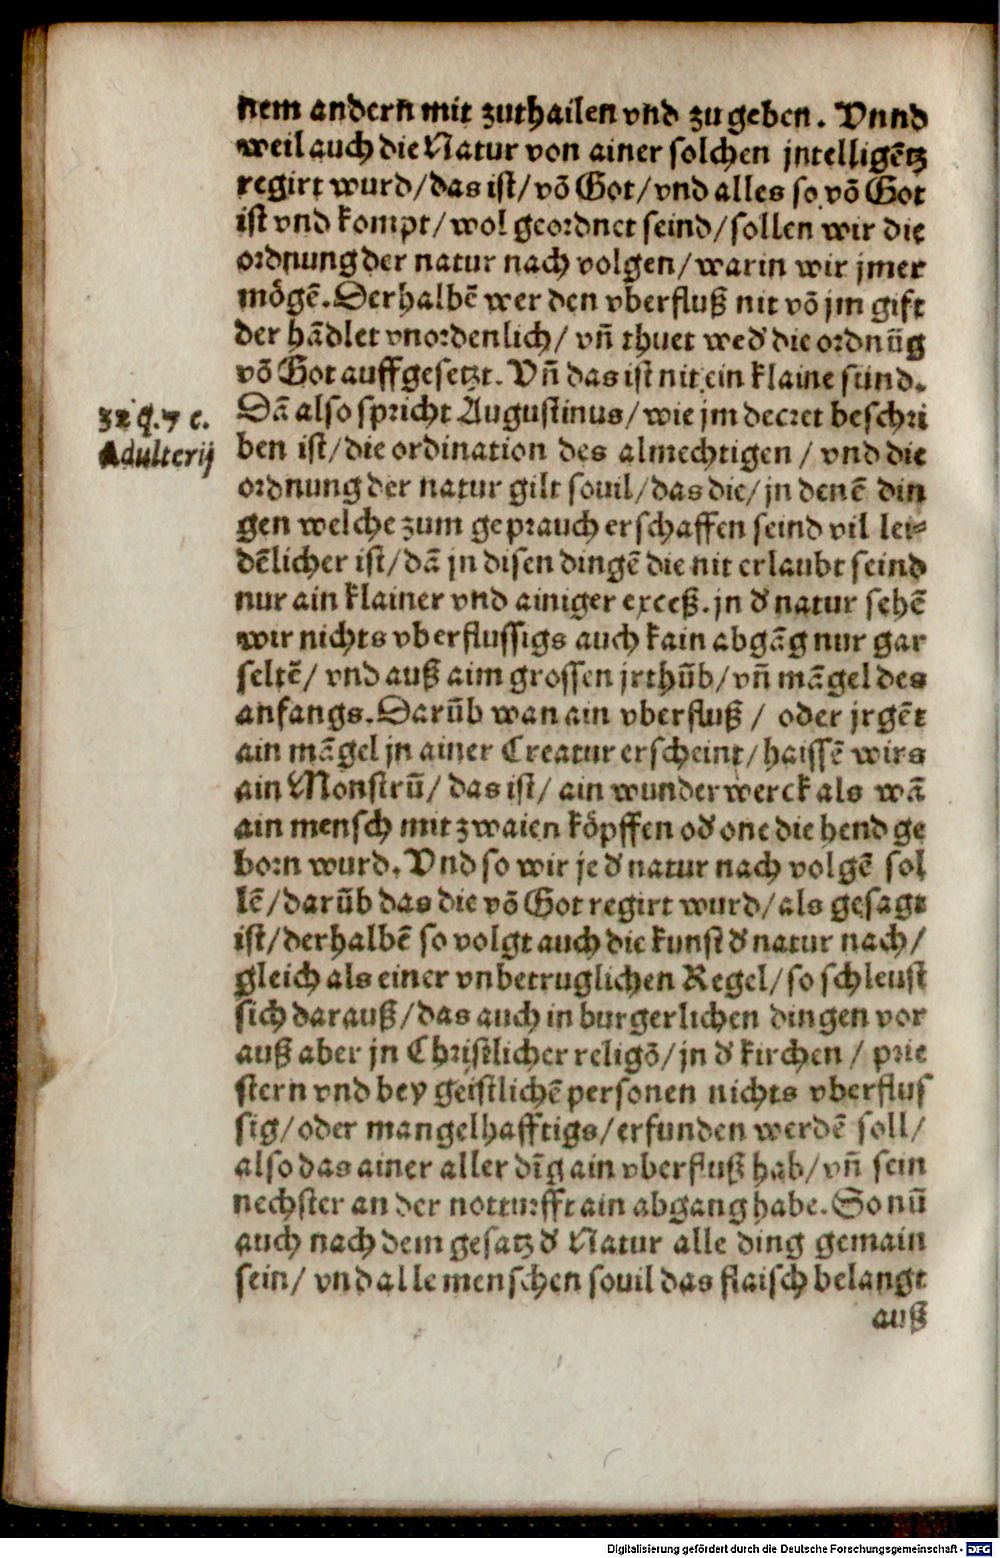 nem andern mit zuthailen vnd zu geben. Vnnd
weil auch die Natur von ainer solchen jntelligẽtz
regirt wurd/das ist/võ Got/vnd alles so võ Got
ist vnd kompt/wol geordnet seind/sollen wir die
ordnung der natur nach volgen/warin wir jmer
mögẽ. Derhalbẽ wer den vberfluß nit võ jm gift
der hãdlet vnordenlich/ vñ thuet wed' die ordnũg
võ Got auffgesetzt. Vñ das ist nit ein klaine sünd.
32 q. 7 c.
Adulterij
Dã also spricht Augustinus/wie jm decret beschri
ben ist/die ordination des almechtigen / vnd die
ordnung der natur gilt souil/das die/jn denẽ din
gen welche zum geprauch erschaffen seind vil lei-
dẽlicher ist/dã jn disen dingẽ die nit erlaubt seind
nur ain klainer vnd ainiger exceß. jn d' natur sehẽ
wir nichts vberflussigs auch kain abgãg nur gar
seltẽ/ vnd auß aim grossen jrthũb/vñ mãgel des
anfangs. Darũb wan ain vberfluß / oder jrgẽt
ain mãgel jn ainer Creatur erscheint/haissẽ wirs
ain Monstrũ/ das ist/ ain wunderwerck als wã
ain mensch mit zwaien köpffen od' one die hend ge
born wurd. Vnd so wir je d' natur nach volgẽ sol
lẽ/darũb das die võ Got regirt wurd/als gesagt
ist/derhalbẽ so volgt auch die kunst d' natur nach/
gleich als einer vnbetruglichen Regel/so schleust
sich darauß/das auch in burgerlichen dingen vor
auß aber jn Christlicher religõ/jn d' kirchen / prie
stern vnd bey geistlichẽ personen nichts vberflus
sig/oder mangelhafftigs/erfunden werdẽ soll/
also das ainer aller dĩg ain vberfluß hab/vñ sein
nechster an der notturfft ain abgang habe. So nũ
auch nach dem gesatz d' Natur alle ding gemain
sein/ vnd alle menschen souil das flaisch belangt
auß
Digitalisierung gefördert durch die Deutsche Forschungsgemeinschaft - DFG